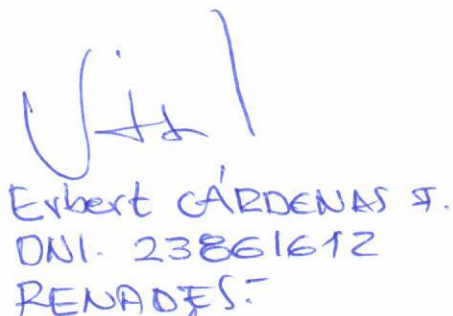 Erbert CÁRDENAS F.
DNI. 23861612
RENADES.